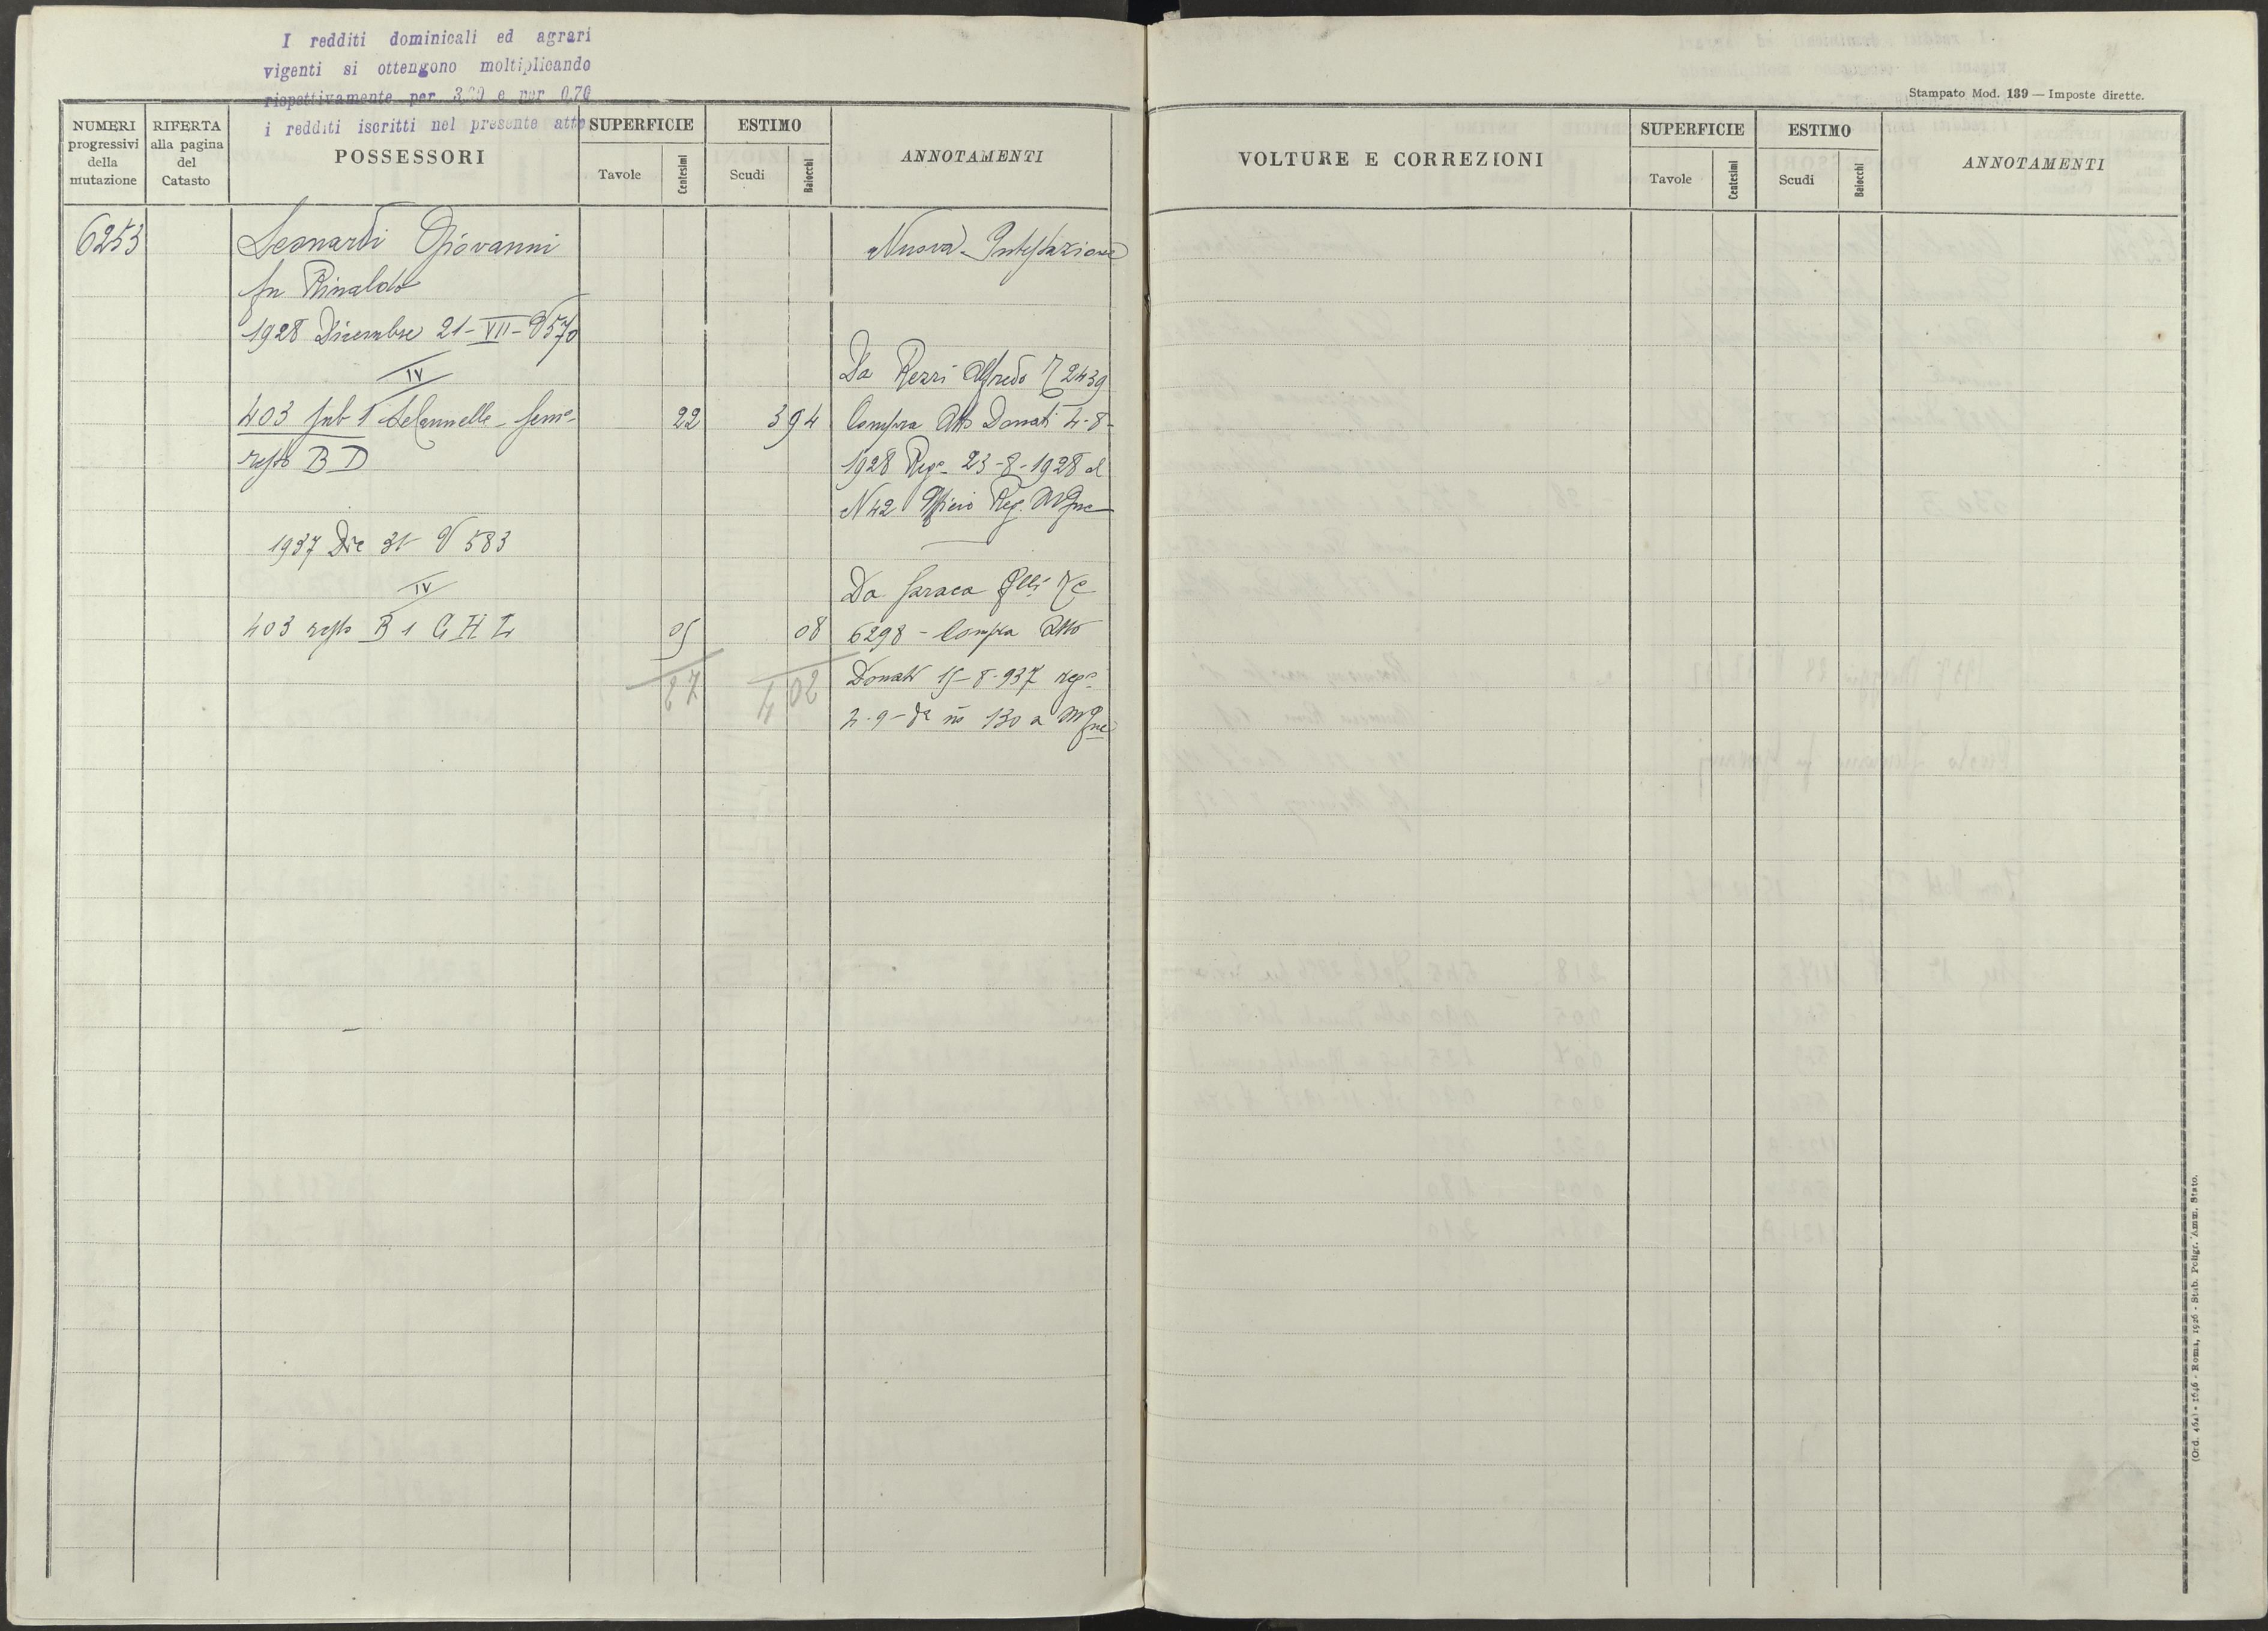 I redditi dominicali ed agrari
vigenti si ottengono moltiplicando
rispettivamente per 3,20 e per 0,70
i redditi iscritti nel presente atto
NUMERI progressivi della mutazione
RIFERTA alla pagina del Catasto
POSSESSORI
SUPERFICIE
Tavole
Centesimi
ESTIMO
Scudi
Baiocchi
ANNOTAMENTI
6253
Leonardi Giovanni
Nuova Intestazione
fu Rinaldo
1928 Dicembre 21-VII-V570
IV
Da Rezzi Alfredo 2439
403 sub 1 semº
22
3 94
Compra Atto Donati 4-8-
resto B D
1928 Regº 23-8-1928 al
N 42 Ufficio Reg.
1937 Dic 31 V 583
IV
Da Saraca flli
403 resto B 1 G H L
05
08
6298 - Compra Atto
27
4 02
Donati 15-8-937 regº
2-9- dº nº 130 a
Stampato Mod. 139 — Imposte dirette.
VOLTURE E CORREZIONI
SUPERFICIE
Tavole
Centesimi
ESTIMO
Scudi
Baiocchi
ANNOTAMENTI
(Ord. 464) - 1646 - Roma, 1926 - Stab. Poligr. Amm. Stato.